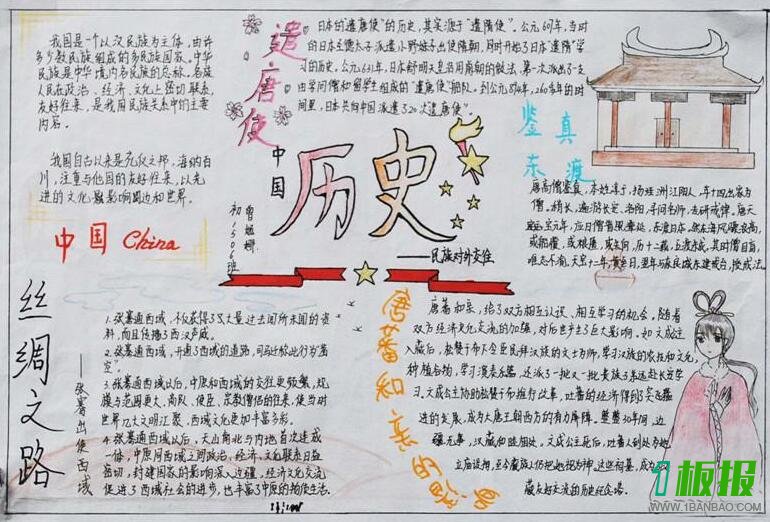 我国是一个以汉民族为主体，由许
多少数民族组成的多民族国家。中华
民族是中华境内各民族的总称。各族
人民在政治、经济、文化上密切联系，
友好往来，是我国民族关系中的主要
内容。
我国自古以来是礼仪之邦，海纳百
川，注重与他国的友好往来，以先
进的文化融影响周边和世界。
中国 China
遣唐使
日本的"遣唐使"的历史，其实源于"遣隋使"。公元607年，当时
的日本圣德太子派遣小野妹子出使隋朝，同时开始了日本"遣隋"学
习的历史。公元631年，日本舒明天皇沿用南朝的做法，第一次派出了一支
由学问僧和留学生组成的"遣唐使"船队。到公元894年，260多年的时
间里，日本共向中国派遣了20次遣唐使"。
中国
历史
——民族对外交往
初1506班
鉴真
东渡
唐高僧鉴真，本姓淳于，扬州江阳人，年十四出家为
僧。稍长，遍游长安、洛阳，寻问名师，
丝绸之路
——张骞出使西域
1. 张骞通西域，不仅获得了大量过去闻所未闻的资
料，而且传播了西汉声威。
2. 张骞通西域，开通了西域的道路，司马迁称此行为"凿
空"。
3. 张骞通西域以后，中原和西域的交往更频繁，规
模与范围更大，商队、使臣、宗教僧侣的往来，使当时
世界几大文明汇聚，西域文化更加丰富多彩。
4. 张骞通西域以后，天山南北与内地首次连成
一体，中原同西域之间政治、经济、文化联系日益
密切，封建国家的影响深入边疆，经济文化交流
促进了西域社会的进步，也丰富了中原的物质生活。
唐蕃和亲
唐蕃和亲，给了双方相互认识、相互学习的机会。随着
双方经济文化交流的加强，对后世产生了巨大影响。如文成公主
入藏后，松赞干布下令臣民拜汉族的文士为师，学习汉族的农技和文化，
种植谷物，学习演奏乐器，还派了一批又一批贵族子弟远赴长安学
习。文成公主协助松赞干布推行改革，吐蕃的经济得到了突飞猛
进的发展，成为大唐王朝西方的有力屏障。整整30年间，边
疆无事，汉藏和睦相处。文成公主死后，吐蕃人到处为她
立庙设祠，至今藏族人仍把她视为神，这些祠墓，成为汉
藏友好交流的历史纪念碑。
1板报
WWW.1BANBAO.COM